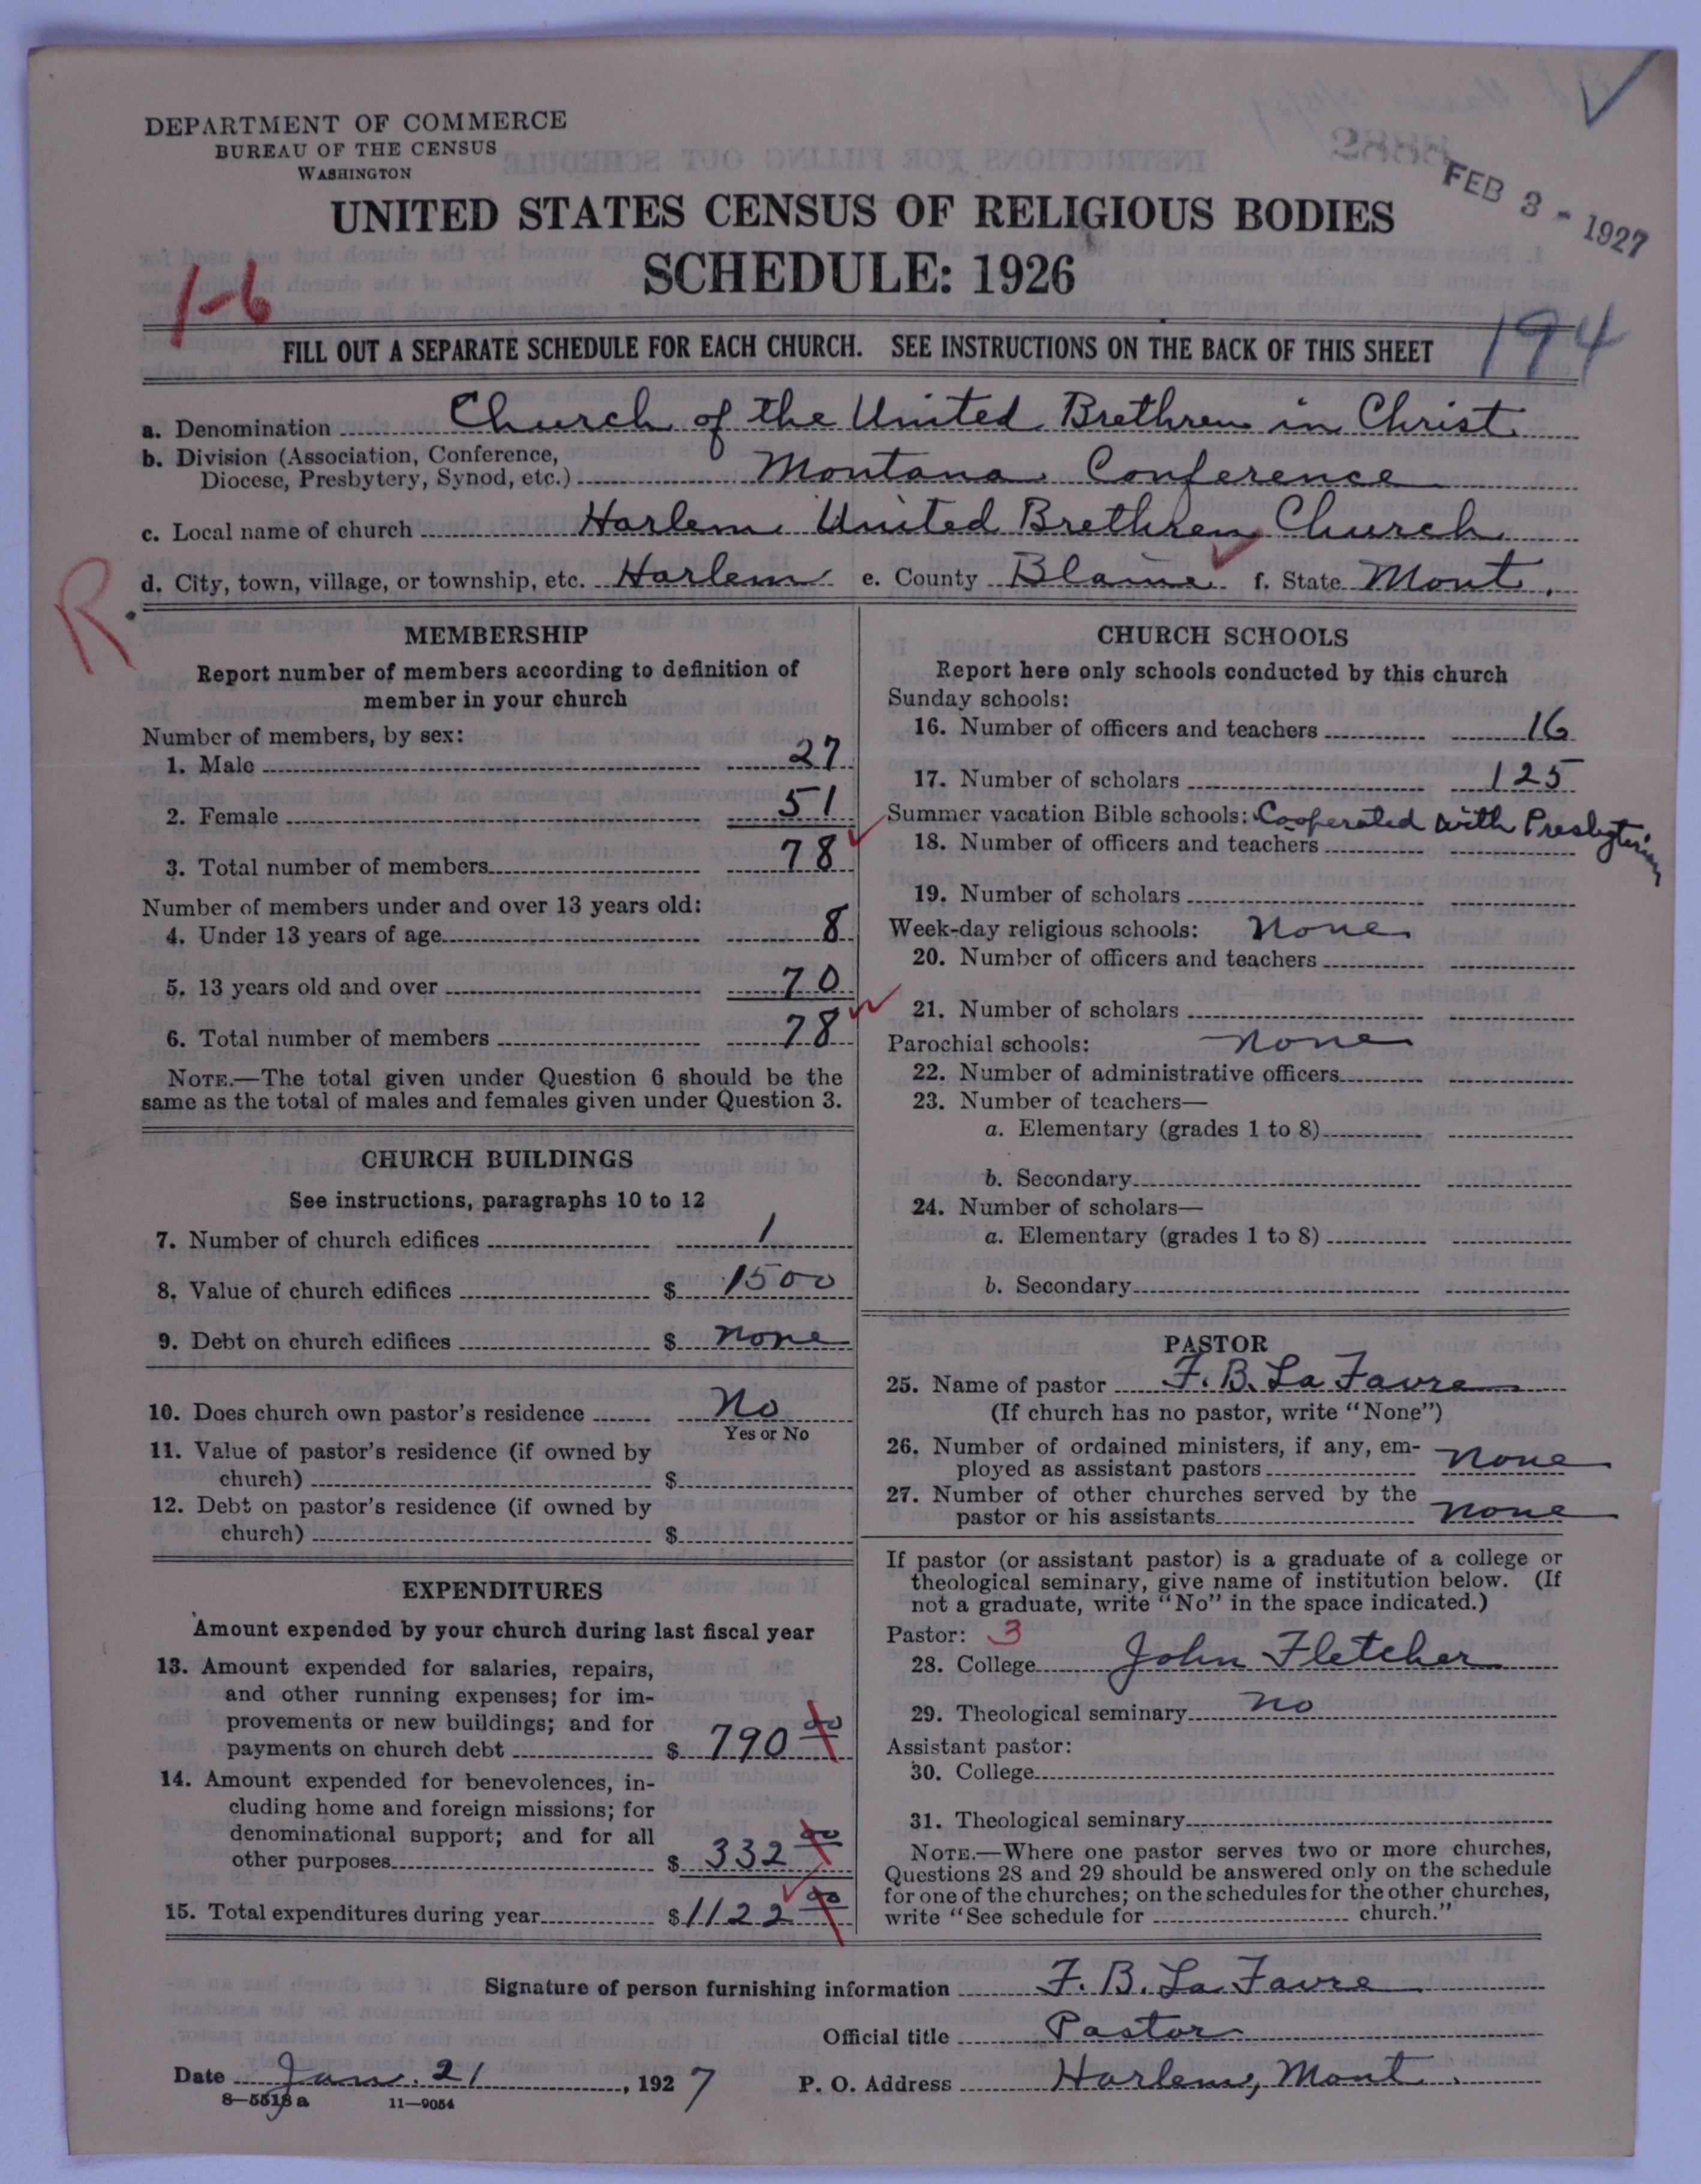 DEPARTMENT OF COMMERCE
BUREAU OF THE CENSUS
WASHINGTON
FEB 3 - 1927
UNITED STATES CENSUS OF RELIGIOUS BODIES
SCHEDULE: 1926
1-6
194
FILL OUT A SEPARATE SCHEDULE FOR EACH CHURCH. SEE INSTRUCTIONS ON THE BACK OF THIS SHEET
a. Denomination Church of the United Brethren in Christ
b. Division (Association, Conference,
Diocese, Presbytery, Synod, etc.) Montana Conference
c. Local name of church Harlem United Brethren Church
d. City, town, village, or township, etc. Harlem e. County Blaine f. State Mont.
R.
MEMBERSHIP
Report number of members according to definition of
member in your church
Number of members, by sex:
1. Male 27
2. Female 51
3. Total number of members 78
Number of members under and over 13 years old:
4. Under 13 years of age 8
5. 13 years old and over 70
6. Total number of members 78
NOTE.—The total given under Question 6 should be the
same as the total of males and females given under Question 3.
CHURCH BUILDINGS
See instructions, paragraphs 10 to 12
7. Number of church edifices 1
8. Value of church edifices $ 1500
9. Debt on church edifices $ none
10. Does church own pastor's residence No
Yes or No
11. Value of pastor's residence (if owned by
church) $
12. Debt on pastor's residence (if owned by
church) $
EXPENDITURES
Amount expended by your church during last fiscal year
13. Amount expended for salaries, repairs,
and other running expenses; for im-
provements or new buildings; and for
payments on church debt $ 790 00
14. Amount expended for benevolences, in-
cluding home and foreign missions; for
denominational support; and for all
other purposes $ 332 00
15. Total expenditures during year $ 1122 00
CHURCH SCHOOLS
Report here only schools conducted by this church
Sunday schools:
16. Number of officers and teachers 16
17. Number of scholars 125
Summer vacation Bible schools: Cooperated with Presbyterian
18. Number of officers and teachers
19. Number of scholars
Week-day religious schools: None
20. Number of officers and teachers
21. Number of scholars
Parochial schools: None
22. Number of administrative officers
23. Number of teachers—
a. Elementary (grades 1 to 8)
b. Secondary
24. Number of scholars—
a. Elementary (grades 1 to 8)
b. Secondary
PASTOR
25. Name of pastor F. B. La Favre
(If church has no pastor, write "None")
26. Number of ordained ministers, if any, em-
ployed as assistant pastors none
27. Number of other churches served by the
pastor or his assistants none
If pastor (or assistant pastor) is a graduate of a college or
theological seminary, give name of institution below. (If
not a graduate, write "No" in the space indicated.)
Pastor: 3
28. College John Fletcher
29. Theological seminary no
Assistant pastor:
30. College
31. Theological seminary
NOTE.—Where one pastor serves two or more churches,
Questions 28 and 29 should be answered only on the schedule
for one of the churches; on the schedules for the other churches,
write "See schedule for church."
Signature of person furnishing information F. B. La Favre
Official title Pastor
Date Jan. 21, 1927 P. O. Address Harlem, Mont.
8-5518 a 11-9054